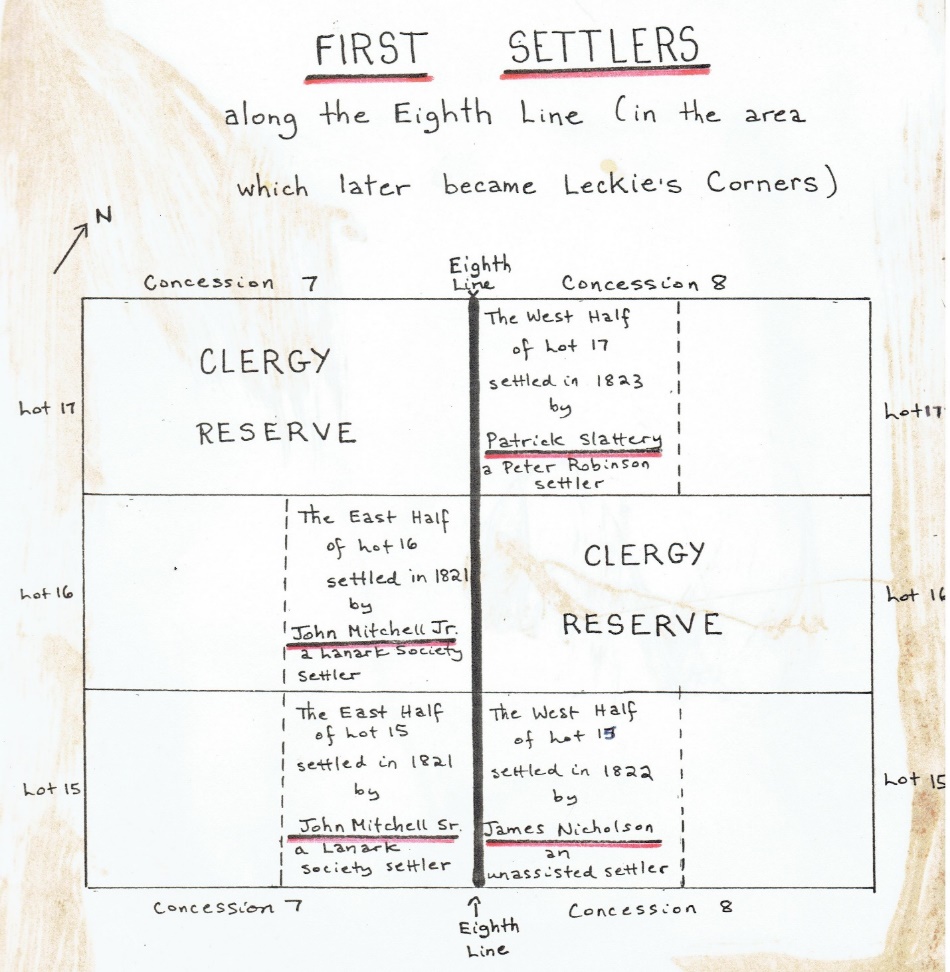 FIRST SETTLERS
along the Eighth Line (in the area
which later became Leckie's Corners)
N
Concession 7
Eighth
Line
Concession 8
Lot 17
CLERGY
RESERVE
The West Half
of Lot 17
settled in 1823
by
Patrick Slattery
a Peter Robinson
settler
Lot 17
Lot 16
The East Half
of Lot 16
settled in 1821
by
John Mitchell Jr.
a Lanark Society
settler
CLERGY
RESERVE
Lot 16
Lot 15
The East Half
of Lot 15
settled in 1821
by
John Mitchell Sr.
a Lanark
society settler
The West Half
of Lot 15
settled in 1822
by
James Nicholson
an
unassisted settler
Lot 15
Concession 7
Eighth
Line
Concession 8